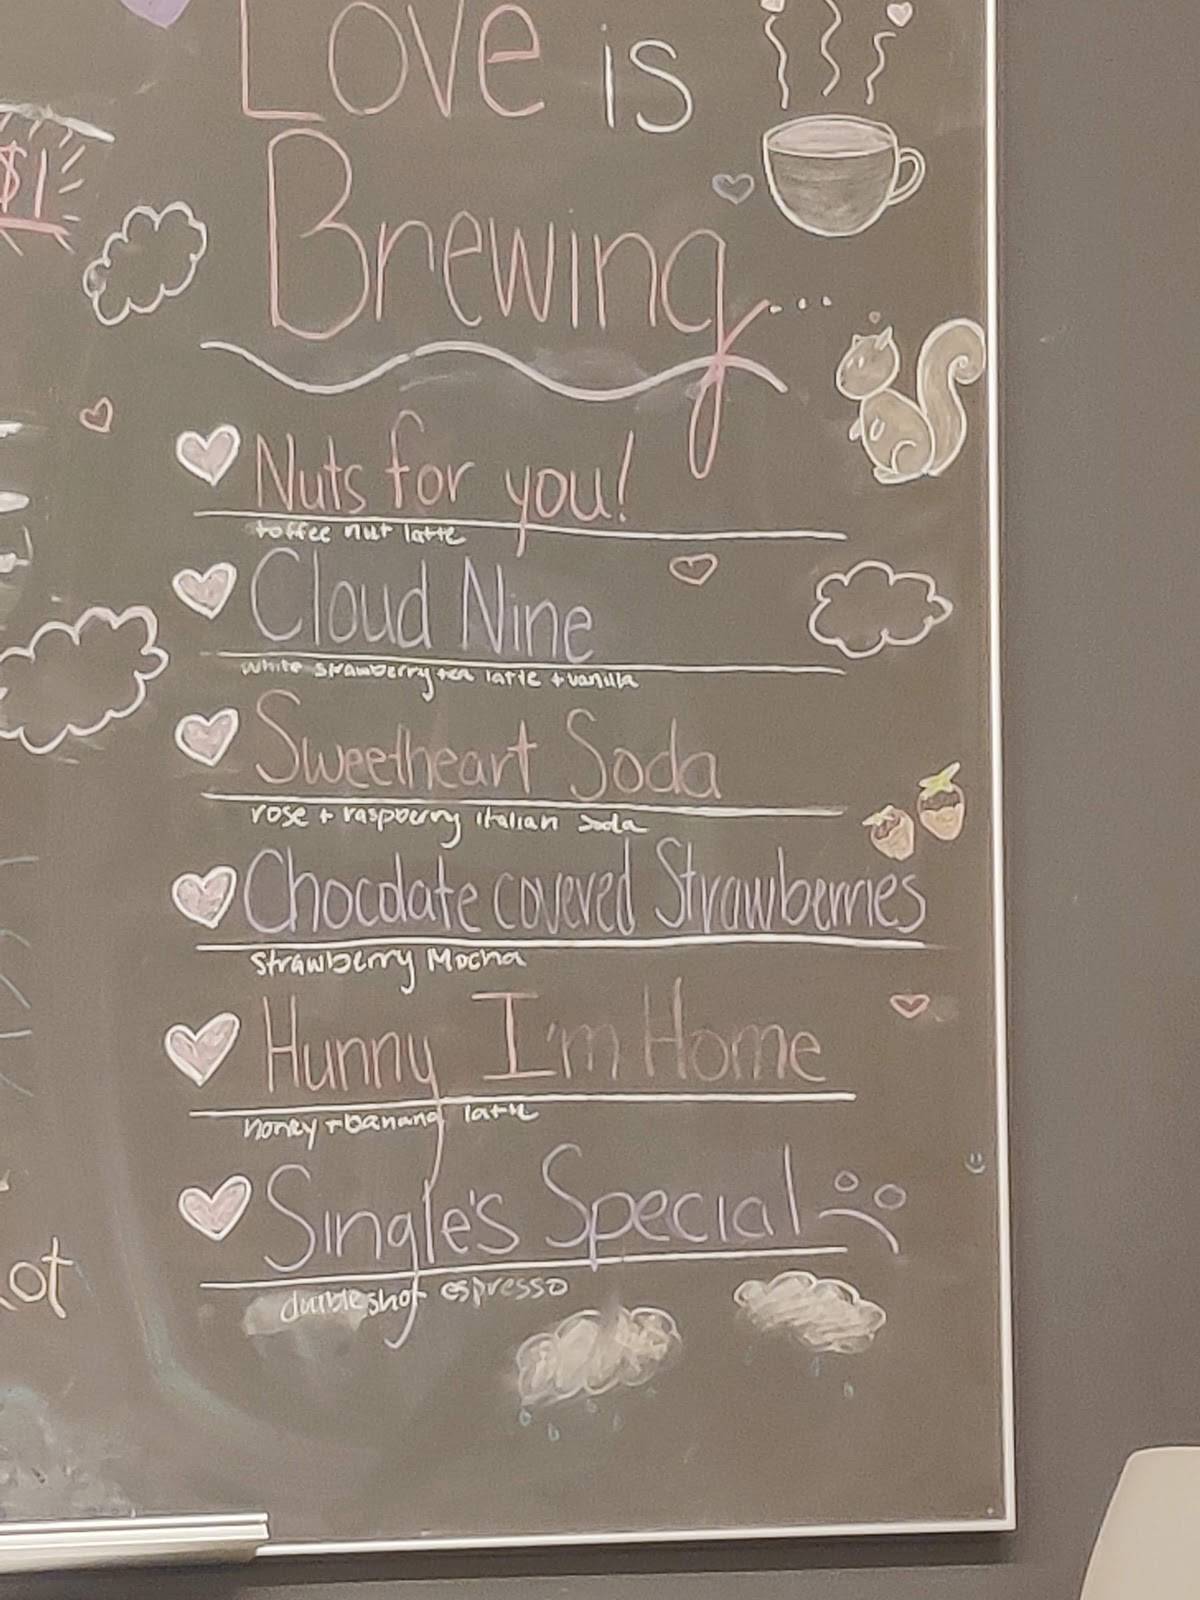 Love is
$1
Brewing...
Nuts for you!
toffee nut latte
Cloud Nine
white strawberry tea latte + vanilla
Sweetheart Soda
rose + raspberry italian soda
Chocolate covered Strawberries
Strawberry Mocha
Hunny I'm Home
honey + banana latte
Single's Special
double shot espresso
ot